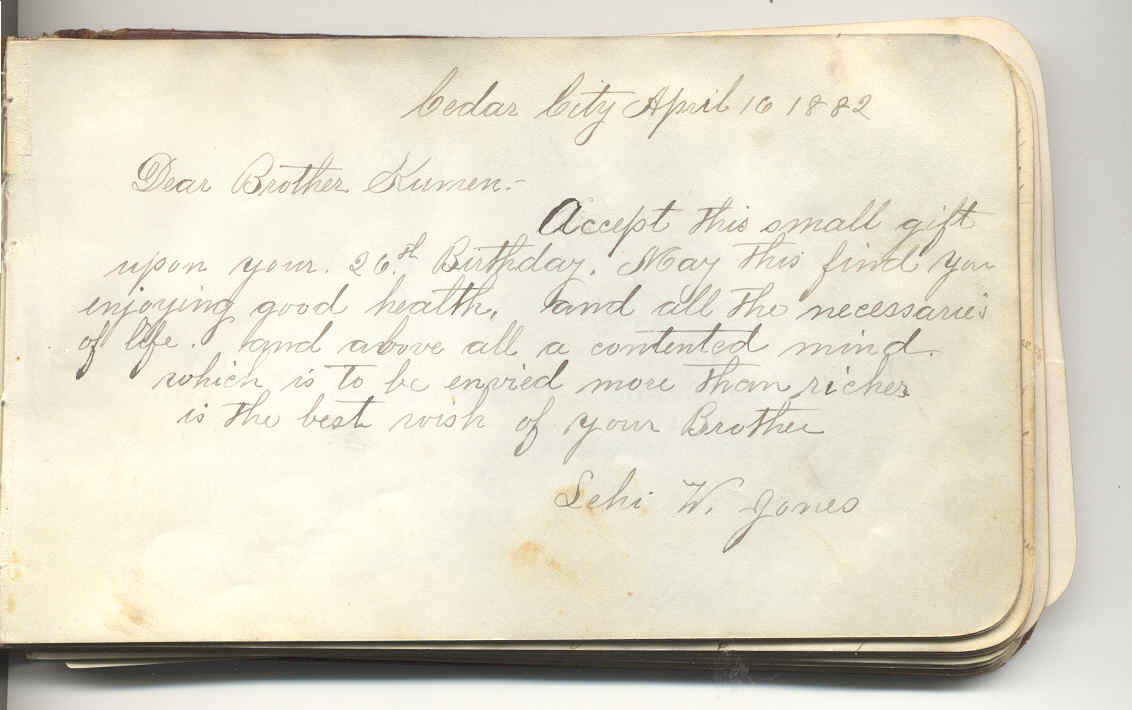 Cedar City April 16 1882
Dear Brother Kumen.-
Accept this small gift
upon your. 26.th Birthday. May this find you
enjoying good health, and all the necessaries
of life. and above all a contented mind.
which is to be envied more than riches
is the best wish of your Brother
Lehi W. Jones